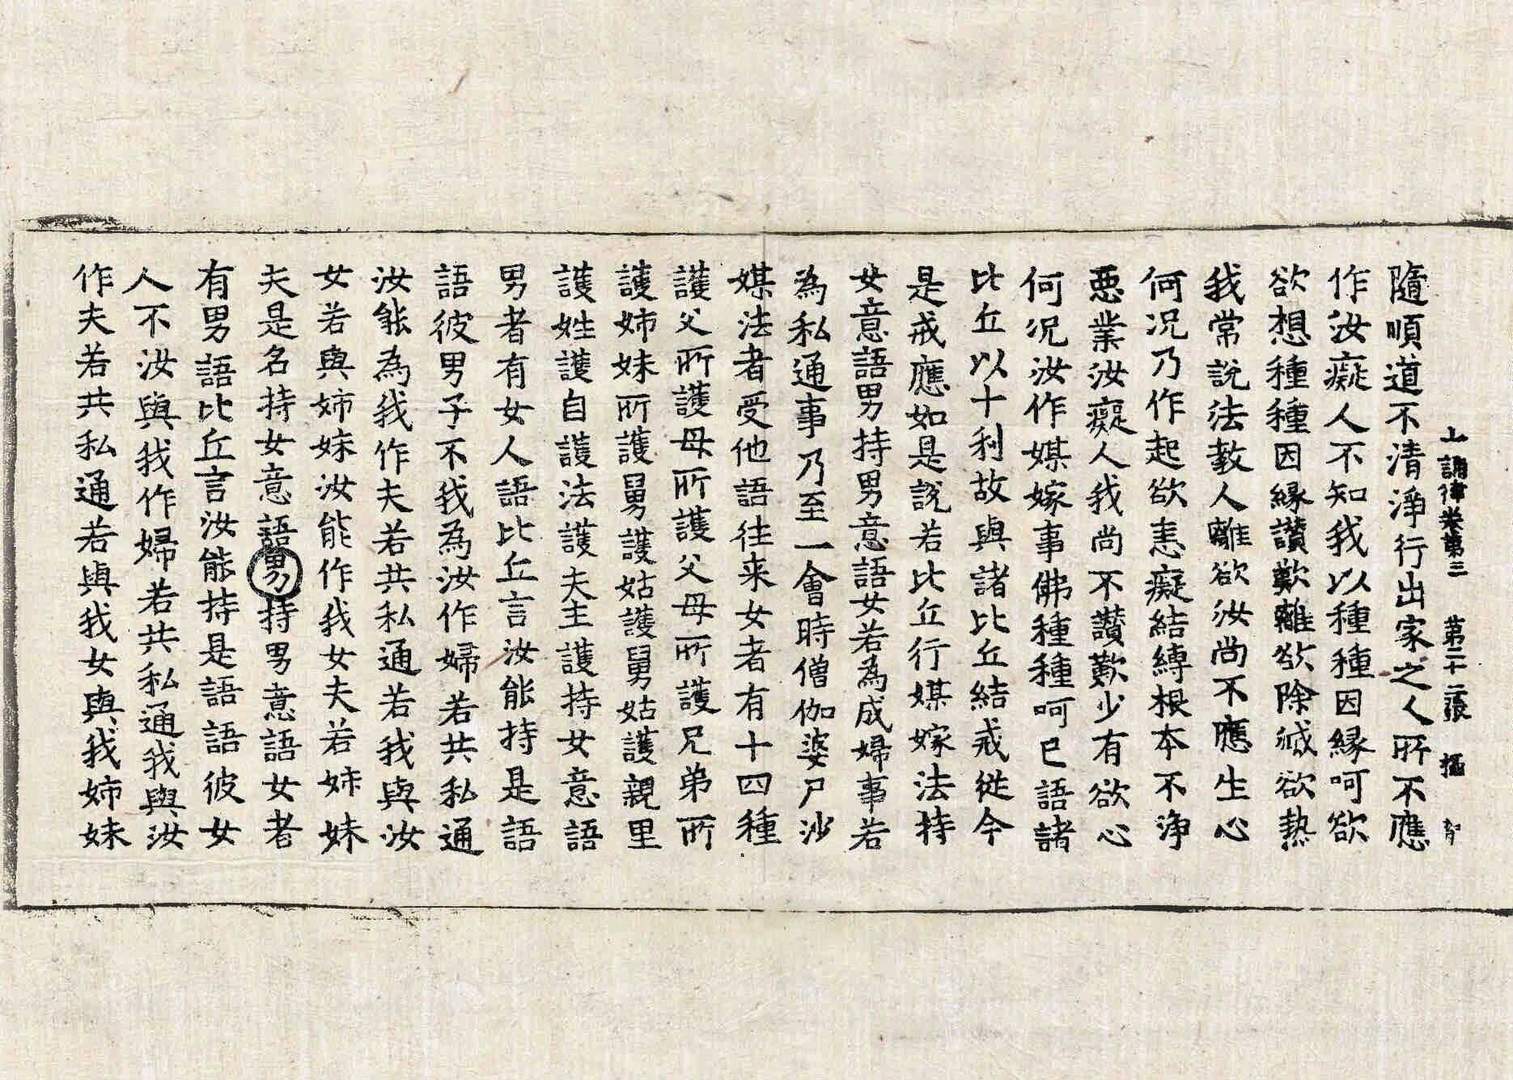 十誦律卷第三　第二十二張　㩲
隨順道不清淨行出家之人所不應
作汝癡人不知我以種種因緣呵欲
欲想種種因緣讚歎離欲除滅欲熱
我常說法教人離欲汝尚不應生心
何况乃作起欲恚癡結縛根本不淨
惡業汝癡人我尚不讚歎少有欲心
何况汝作媒嫁事佛種種呵已語諸
比丘以十利故與諸比丘結戒從今
是戒應如是說若比丘行媒嫁法持
女意語男持男意語女若為成婦事若
為私通事乃至一會時僧伽婆尸沙
媒法者受他語往来女者有十四種
護父所護母所護父母所護兄弟所
護姉妹所護舅護姑護舅姑護親里
護姓護自護法護夫主護持女意語
男者有女人語比丘言汝能持是語
語彼男子不我為汝作婦若共私通
汝能為我作夫若共私通若我與汝
女若與姉妹汝能作我女夫若姉妹
夫是名持女意語男持男意語女者
有男語比丘言汝能持是語語彼女
人不汝與我作婦若共私通我與汝
作夫若共私通若與我女與我姉妹